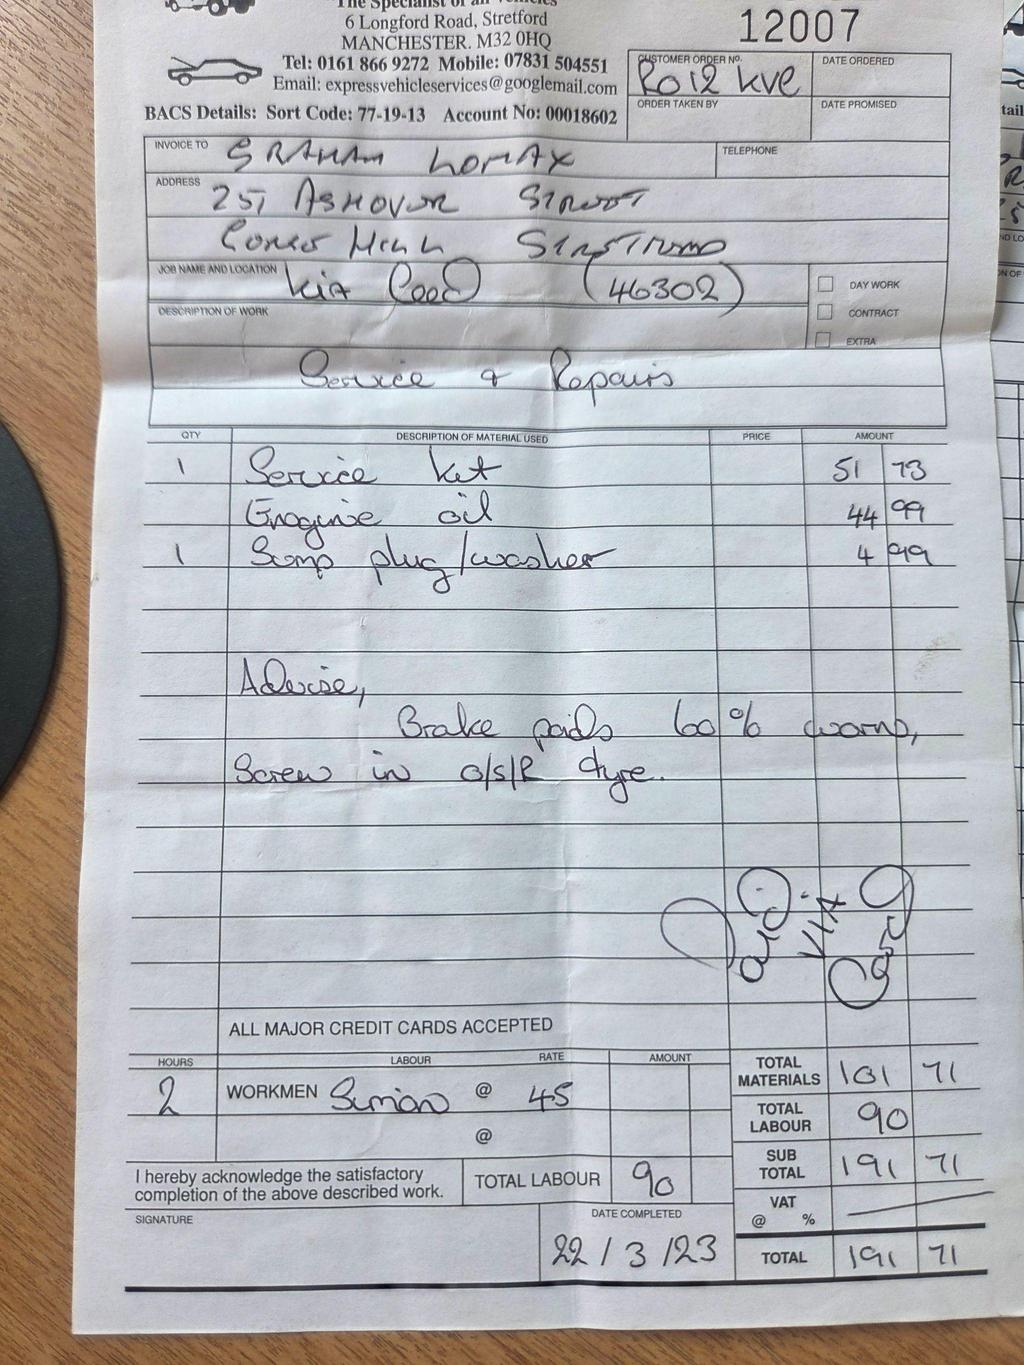 The Specialist of all Vehicles
6 Longford Road, Stretford
MANCHESTER. M32 0HQ
Tel: 0161 866 9272 Mobile: 07831 504551
Email: expressvehicleservices@googlemail.com
BACS Details: Sort Code: 77-19-13 Account No: 00018602
12007
CUSTOMER ORDER No. RO12 KVE
DATE ORDERED
ORDER TAKEN BY
DATE PROMISED
INVOICE TO GRAHAM LOMAX
TELEPHONE
ADDRESS 251 ASHOVER STREET
STRETFORD
JOB NAME AND LOCATION KIA Ceed (46302)
DAY WORK
CONTRACT
EXTRA
DESCRIPTION OF WORK
Service & Repairs
QTY DESCRIPTION OF MATERIAL USED PRICE AMOUNT
1 Service kit 51 73
Enogine oil 44 99
1 Sump plug/washer 4 99
Advise,
Brake paids 60% worn,
Screw in o/s/R tyre.
Paid
VIA
Card
ALL MAJOR CREDIT CARDS ACCEPTED
HOURS LABOUR RATE AMOUNT
2 WORKMEN Simon @ 45
@
TOTAL MATERIALS 101 71
TOTAL LABOUR 90
SUB TOTAL 191 71
VAT @ %
TOTAL 191 71
I hereby acknowledge the satisfactory
completion of the above described work.
TOTAL LABOUR 90
SIGNATURE
DATE COMPLETED
22/3/23